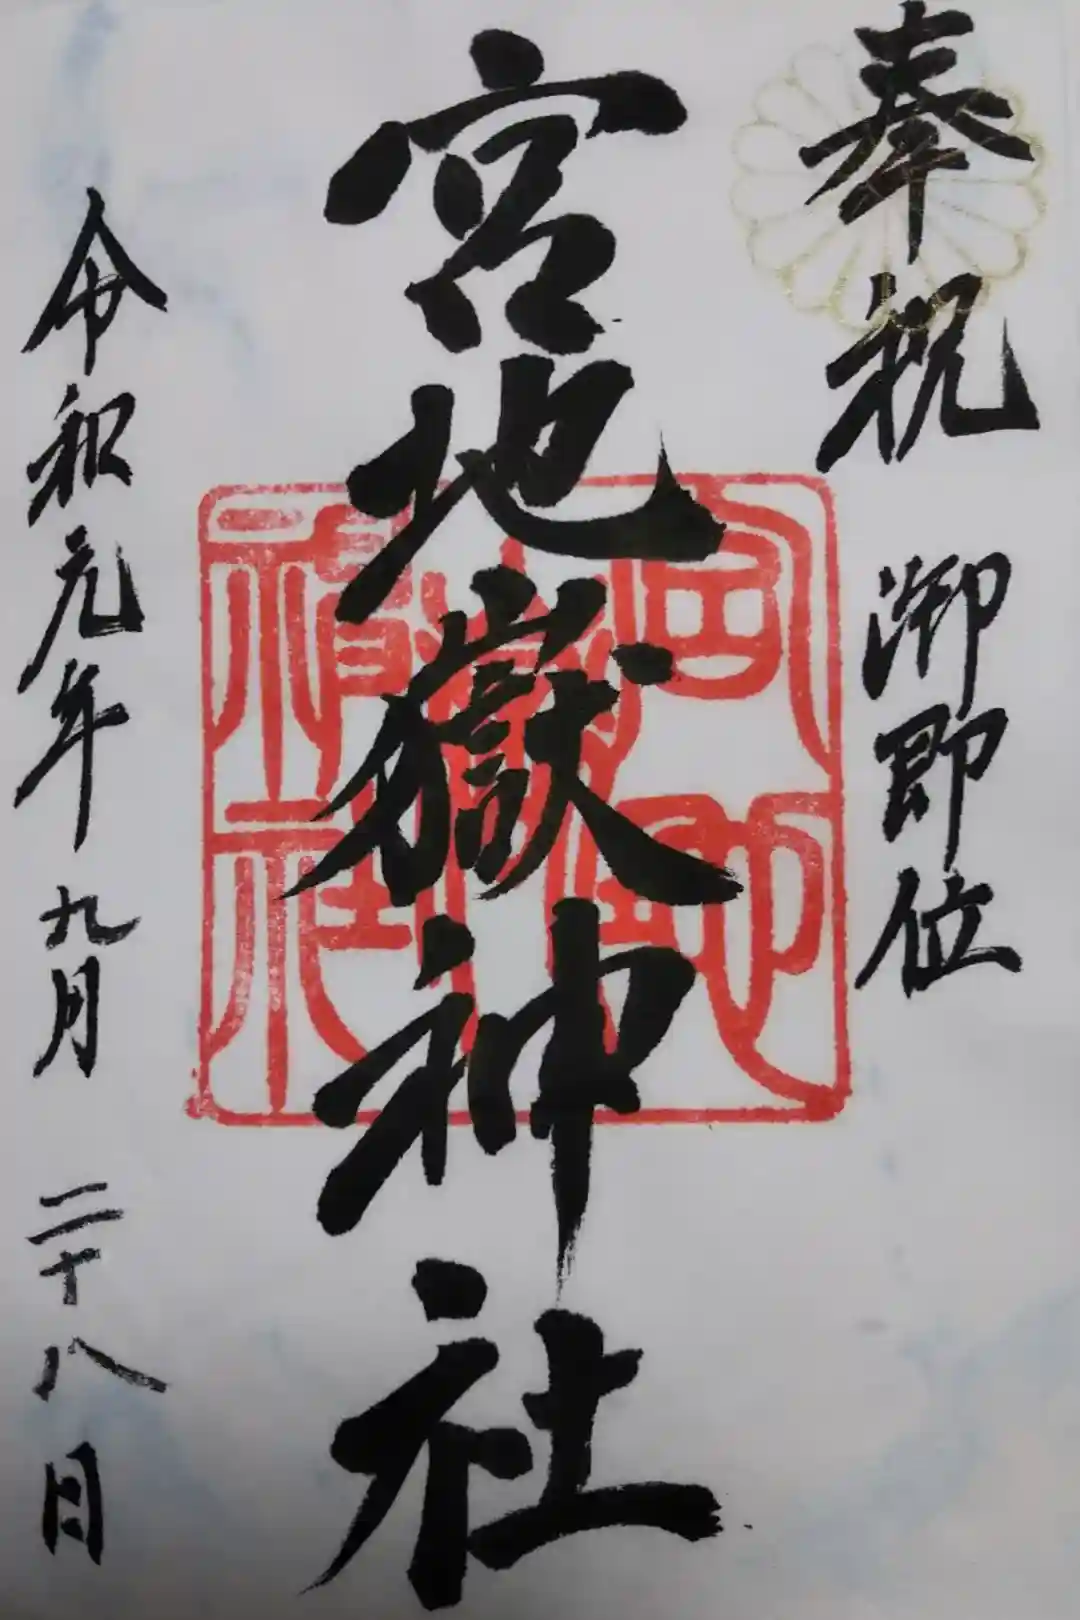 奉祝 御即位
宮地嶽神社
令和元年 九月 二十八日